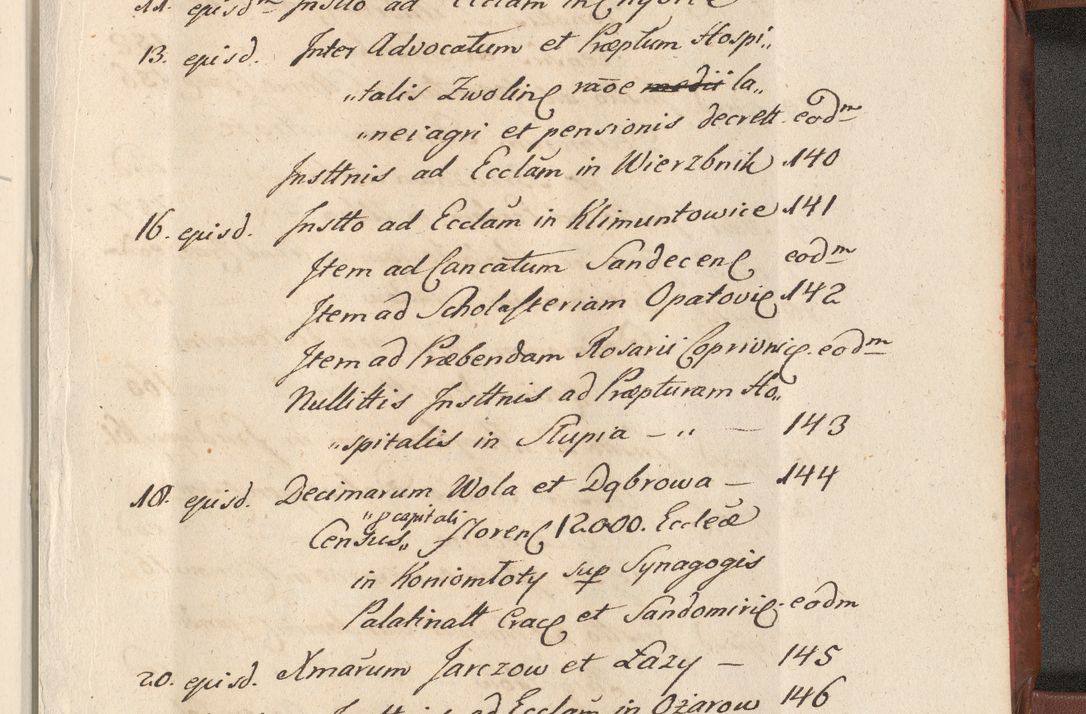 11. episdm Instto ad Ecclam in
13. episd. Inter Advocatum et Præptum Hospi„
„talis Zwolinę raõe medii la„
„nei agri et pensionis decrett. eodm
Insttnis ad Ecclãm in Wierzbnik 140
16. episd. Instto ad Ecclãm in Klimuntowice 141
Item ad Cancatum Sandecenę eodm
Item ad Scholasteriam Opatovię 142
Item ad Præbendam Rosarii Coprivnię. eodm
Nullittis Insttnis ad Præpturam Ho„
„spitalis in Slupia – „ – 143
18. episd. Decimarum Wola et Dąbrowa – 144
„ p capitali
Census„ Florenę 12000. Eccleæ
in Koniomłoty sup Synagogis
Palatinatt Cracę et Sandomirię. eodm
20. episd. Xmarum Jarczow et Łazy – 145
ad Ecclãm in Ożarow 146